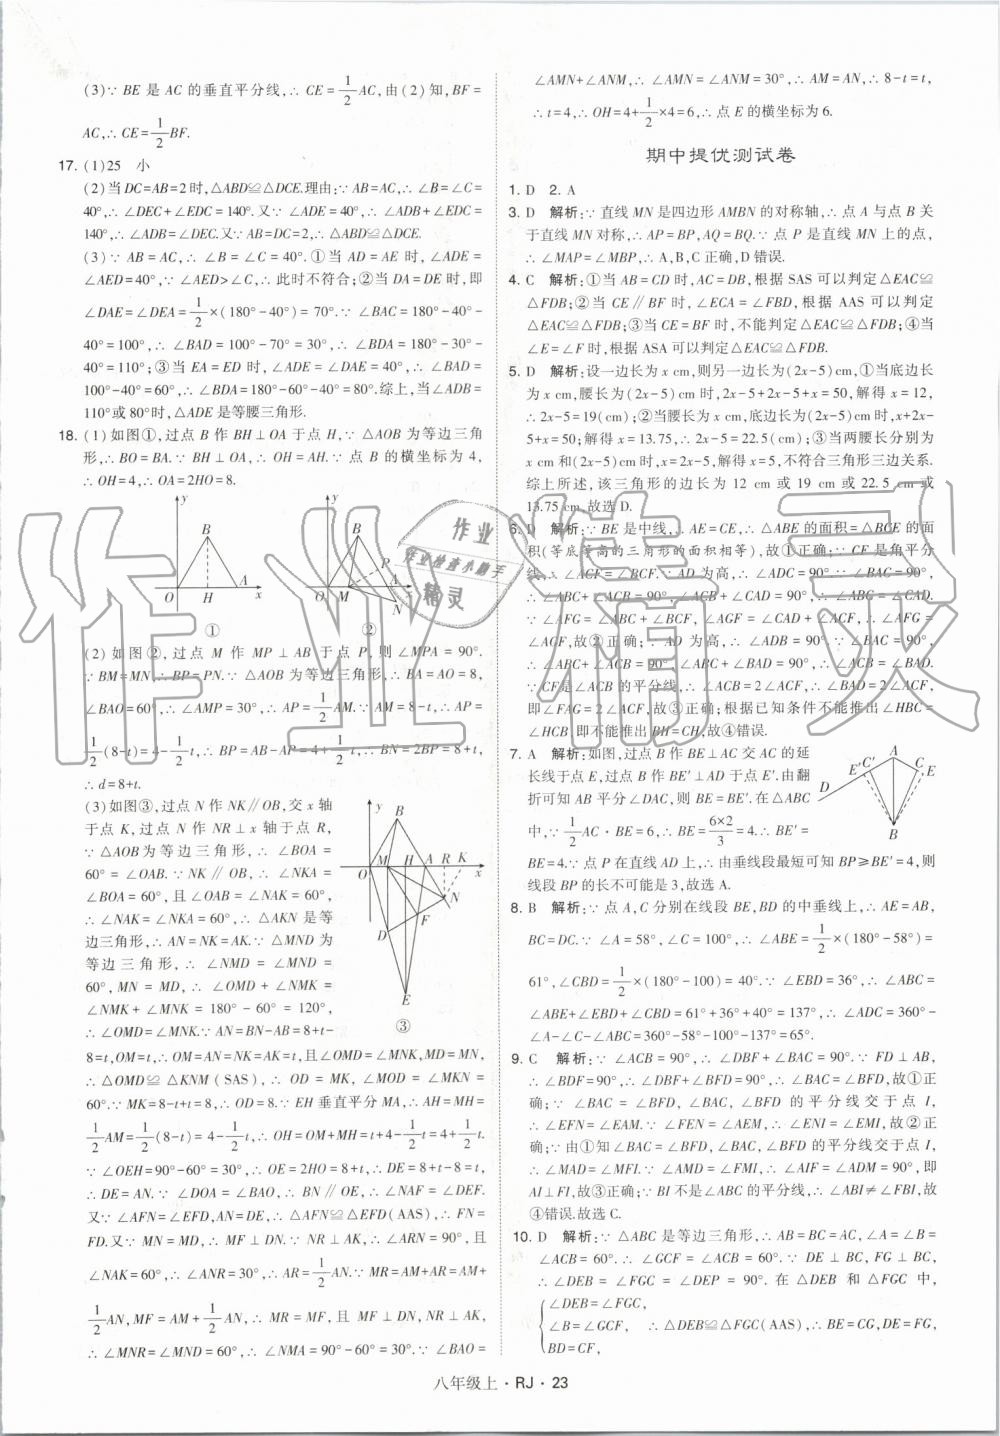 (3)∵ BE 是 AC 的垂直平分线,∴ CE=1/2AC,由(2)知,BF=
AC,∴ CE=1/2BF.
17. (1)25 小
(2)当 DC=AB=2 时,△ABD≌△DCE.理由:∵ AB=AC,∴ ∠B=∠C=
40°,∴ ∠DEC+∠EDC=140°.又∵ ∠ADE=40°,∴ ∠ADB+∠EDC=
140°,∴ ∠ADB=∠DEC.又∵ AB=DC=2,∴ △ABD≌△DCE(AAS).
(3)∵ AB=AC,∴ ∠B=∠C=40°.①当 AD=AE 时,∠ADE=
∠AED=40°,∵ ∠AED>∠C,∴ 此时不符合;②当 DA=DE 时,即
∠DAE=∠DEA=1/2×(180°-40°)=70°.∵ ∠BAC=180°-40°-
40°=100°,∴ ∠BAD=100°-70°=30°,∴ ∠BDA=180°-30°-
40°=110°;③当 EA=ED 时,∠ADE=∠DAE=40°,∴ ∠BAD=
100°-40°=60°,∴ ∠BDA=180°-60°-40°=80°.综上,当∠ADB=
110°或80°时,△ADE 是等腰三角形.
18. (1)如图①,过点 B 作 BH⊥OA 于点 H,∵ △AOB 为等边三角
形,∴ BO=BA.∵ BH⊥OA,∴ OH=AH.∵ 点 B 的横坐标为 4,
∴ OH=4,∴ OA=2HO=8.
y
B
O
H
A
x
①
y
B
P
O
M
A
N
x
②
(2)如图②,过点 M 作 MP⊥AB 于点 P,则∠MPA=90°.
∵ BM=MN,∴ BP=PN.∵ △AOB 为等边三角形,∴ BA=AO=8,
∠BAO=60°,∴ ∠AMP=30°,∴ AP=1/2AM.∵ AM=8-t,∴ AP=
1/2(8-t)=4-1/2t,∴ BP=AB-AP=4+1/2t,∴ BN=2BP=8+t,
∴ d=8+t.
(3)如图③,过点 N 作 NK∥OB,交 x 轴
于点 K,过点 N 作 NR⊥x 轴于点 R,
∵ △AOB为等边三角形,∴ ∠BOA=
60°=∠BAO.∵ NK∥OB,∴ ∠NKA=
∠BOA=60°,且∠OAB=∠NAK=60°,
∴ ∠NAK=∠NKA=60°,∴ △AKN 是等
边三角形,∴ AN=NK=AK.∵ △MND 为
等边三角形,∴ ∠NMD=∠MND=
60°,MN=MD,∴ ∠OMD+∠NMK=
∠NMK+∠MNK=180°-60°=120°,
∴ ∠OMD=∠MNK.∵ AN=BN-AB=8+t-
y
B
M
H
A
R
K
O
x
N
F
D
E
③
8=t,OM=t,∴ OM=AN=NK=AK=t,且∠OMD=∠MNK,MD=MN,
∴ △OMD≌△KNM(SAS),∴ OD=MK,∠MOD=∠MKN=
60°.∵ MK=8-t+t=8,∴ OD=8.∵ EH 垂直平分 MA,∴ AH=MH=
1/2AM=1/2(8-t)=4-1/2t,∴ OH=OM+MH=t+4-1/2t=4+1/2t.
∵ ∠OEH=90°-60°=30°,∴ OE=2HO=8+t,∴ DE=8+t-8=t,
∴ DE=AN.∵ ∠DOA=∠BAO,∴ BN∥OE,∴ ∠NAF=∠DEF.
又∵ ∠AFN=∠EFD,AN=DE,∴ △AFN≌△EFD(AAS),∴ FN=
FD.又∵ MN=MD,∴ MF⊥DN.∵ NR⊥AK,∴ ∠ARN=90°,且
∠NAK=60°,∴ ∠ANR=30°,∴ AR=1/2AN.∵ MR=AM+AR=AM+
1/2AN,MF=AM+1/2AN,∴ MR=MF,且 MF⊥DN,NR⊥AK,
∴ ∠MNR=∠MND=60°,∴ ∠NMA=90°-60°=30°.∵ ∠BAO=
∠AMN+∠ANM,∴ ∠AMN=∠ANM=30°,∴ AM=AN,∴ 8-t=t,
∴ t=4,∴ OH=4+1/2×4=6,∴ 点 E 的横坐标为 6.
期中提优测试卷
1. D 2. A
3. D 解析:∵ 直线 MN 是四边形 AMBN 的对称轴,∴ 点 A 与点 B 关
于直线 MN 对称,∴ AP=BP,AQ=BQ.∵ 点 P 是直线 MN 上的点,
∴ ∠MAP=∠MBP,∴ A,B,C 正确,D 错误.
4. C 解析:①当 AB=CD 时,AC=DB,根据 SAS 可以判定△EAC≌
△FDB;②当 CE∥BF 时,∠ECA=∠FBD,根据 AAS 可以判定
△EAC≌△FDB;③当 CE=BF 时,不能判定△EAC≌△FDB;④当
∠E=∠F 时,根据 ASA 可以判定△EAC≌△FDB.
5. D 解析:设一边长为 x cm,则另一边长为(2x-5)cm,①当底边长
为 x cm,腰长为(2x-5)cm 时,2x-5+2x-5+x=50,解得 x=12,
∴ 2x-5=19(cm);②当腰长为 x cm,底边长为(2x-5)cm时,x+2x-
5+x=50;解得 x=13.75,∴ 2x-5=22.5(cm);③当两腰长分别为
x cm 和(2x-5)cm 时,x=2x-5,解得 x=5,不符合三角形三边关系.
综上所述,该三角形的边长为 12 cm 或 19 cm 或 22.5 cm 或
13.75 cm.故选 D.
6. D 解析:∵ BE 是中线,∴ AE=CE,∴ △ABE 的面积=△BCE 的面
积(等底等高的三角形的面积相等),故①正确;∵ CF 是角平分
线,∴ ∠ACF=∠BCF.∵ AD为高,∴ ∠ADC=90°.∵ ∠BAC=90°,
∴ ∠ABC+∠ACB=90°,∠ACB+∠CAD=90°,∴ ∠ABC=∠CAD.
∵ ∠AFG=∠ABC+∠BCF,∠AGF=∠CAD+∠ACF,∴ ∠AFG=
∠AGF,故②正确;∵ AD 为高,∴ ∠ADB=90°.∵ ∠BAC=90°,
∴ ∠ABC+∠ACB=90°,∠ABC+∠BAD=90°,∴ ∠ACB=∠BAD.
∵ CF是∠ACB 的平分线,∴ ∠ACB=2∠ACF,∴ ∠BAD=2∠ACF,
即∠FAG=2∠ACF,故③正确;根据已知条件不能推出∠HBC=
∠HCB,即不能推出 BH=CH,故④错误.
7. A 解析:如图,过点 B 作 BE⊥AC 交 AC 的延
长线于点 E,过点 B 作 BE′⊥AD 于点 E′.由翻
折可知 AB 平分∠DAC,则 BE=BE′.在△ABC
中,∵ 1/2AC·BE=6,∴ BE=6×2/3=4.∴ BE′=
A
D
E′
C′
C
E
B
BE=4.∵ 点 P 在直线 AD 上,∴ 由垂线段最短可知 BP≥BE′=4,则
线段 BP 的长不可能是 3,故选 A.
8. B 解析:∵ 点 A,C 分别在线段 BE,BD 的中垂线上,∴ AE=AB,
BC=DC.∵ ∠A=58°,∠C=100°,∴ ∠ABE=1/2×(180°-58°)=
61°,∠CBD=1/2×(180°-100)=40°.∵ ∠EBD=36°,∴ ∠ABC=
∠ABE+∠EBD+∠CBD=61°+36°+40°=137°,∴ ∠ADC=360°-
∠A-∠C-∠ABC=360°-58°-100°-137°=65°.
9. C 解析:∵ ∠ACB=90°,∴ ∠DBF+∠BAC=90°.∵ FD⊥AB,
∴ ∠BDF=90°,∴ ∠DBF+∠BFD=90°,∴ ∠BAC=∠BFD,故①正
确;∵ ∠BAC=∠BFD,∠BAC,∠BFD 的平分线交于点 I,
∴ ∠EFN=∠EAM.∵ ∠FEN=∠AEM,∴ ∠ENI=∠EMI,故②正
确;∵ 由①知∠BAC=∠BFD,∠BAC,∠BFD 的平分线交于点 I,
∴ ∠MAD=∠MFI.∵ ∠AMD=∠FMI,∴ ∠AIF=∠ADM=90°,即
AI⊥FI,故③正确;∵ BI 不是∠ABC 的平分线,∴ ∠ABI≠∠FBI,故
④错误.故选 C.
10. D 解析:∵ △ABC 是等边三角形,∴ AB=BC=AC,∠A=∠B=
∠ACB=60°.∴ ∠GCF=∠ACB=60°.∵ DE⊥BC,FG⊥BC,
∴ ∠DEB=∠FGC=∠DEP=90°.在△DEB 和△FGC 中,
∠DEB=∠FGC,
∠B=∠GCF, ∴ △DEB≌△FGC(AAS),∴ BE=CG,DE=FG,
BD=CF,
八年级上·RJ·23
作业
作业检查小助手
精灵
作业精灵